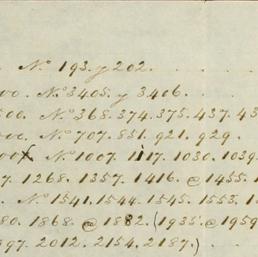 . No. 193. y 202.
00. No. 3405. y 3406.
00. No. 368. 374. 375. 437. 43
00. No. 707. 851. 921. 929.
00X No. 1007. 1117. 1030. 1039
7. 1268. 1357. 1416. @ 1455. 1
. No. 1541. 1544. 1545. 1553. 1
80. 1868. @ 1882. (1935. @ 1959
997. 2012. 2154. 2187.)